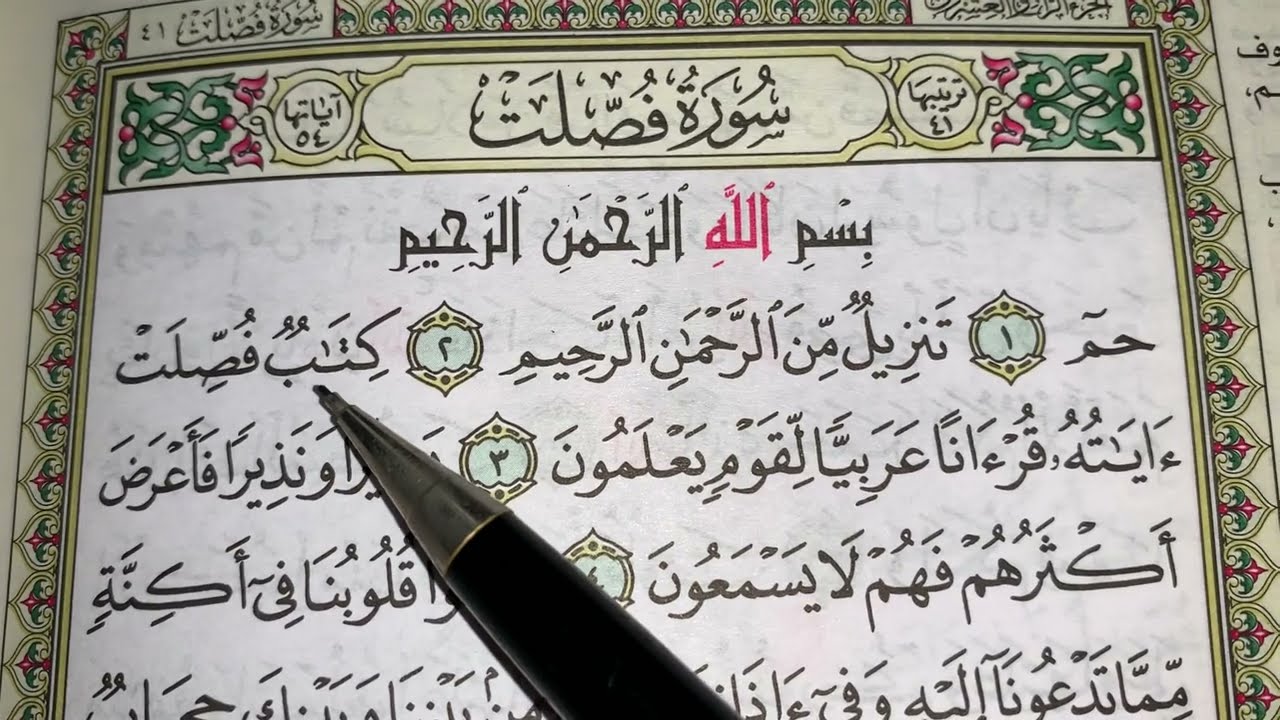 سُورَةُ فُصِّلَتْ ٤١
تَرْتِيبُهَا ٤١
سُورَةُ فُصِّلَتْ
آيَاتُهَا ٥٤
بِسْمِ ٱللَّهِ ٱلرَّحْمَٰنِ ٱلرَّحِيمِ
حمٓ ١ تَنزِيلٌ مِّنَ ٱلرَّحْمَٰنِ ٱلرَّحِيمِ ٢ كِتَٰبٌ فُصِّلَتْ
ءَايَٰتُهُۥ قُرْءَانًا عَرَبِيًّا لِّقَوْمٍ يَعْلَمُونَ ٣ وَنَذِيرًا فَأَعْرَضَ
أَكْثَرُهُمْ فَهُمْ لَا يَسْمَعُونَ ٤ قُلُوبُنَا فِىٓ أَكِنَّةٍ
مِّمَّا تَدْعُونَآ إِلَيْهِ وَفِىٓ